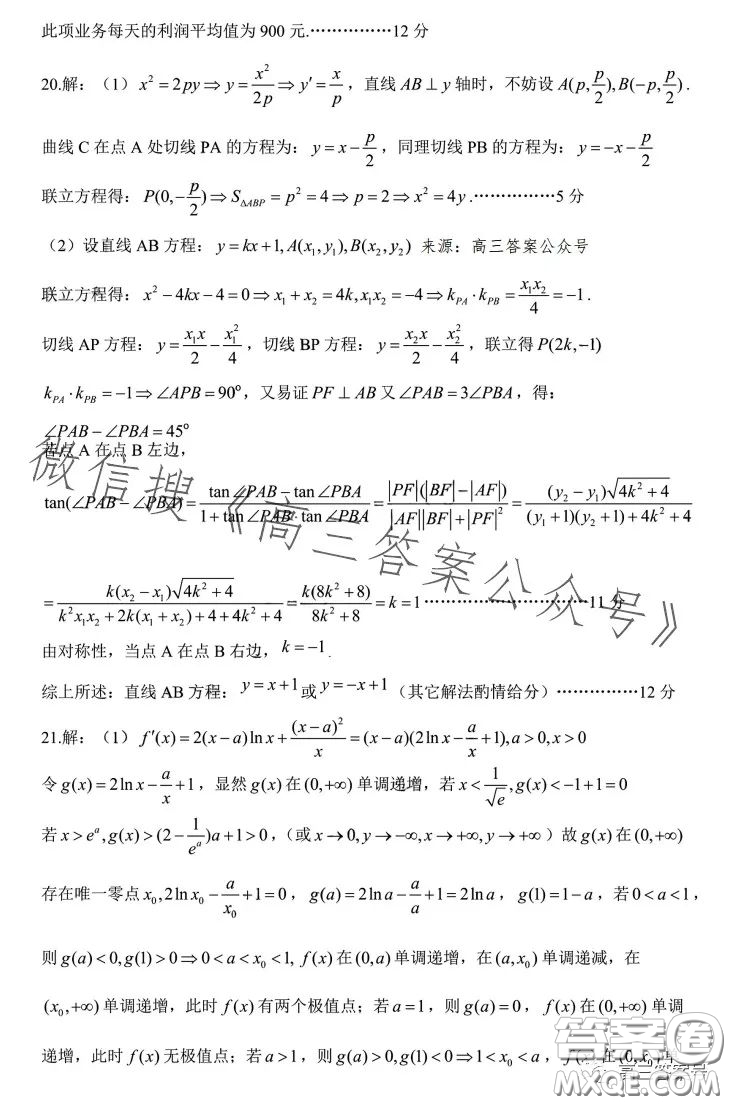 此项业务每天的利润平均值为 900 元.……………12 分
20.解：（1） x²=2py⇒y=x²/2p⇒y′=x/p，直线 AB⊥y 轴时，不妨设 A(p,p/2),B(−p,p/2).
曲线 C 在点 A 处切线 PA 的方程为：y=x−p/2，同理切线 PB 的方程为：y=−x−p/2
联立方程得：P(0,−p/2)⇒S△ABP=p²=4⇒p=2⇒x²=4y.……………5 分
（2）设直线 AB 方程：y=kx+1,A(x₁,y₁),B(x₂,y₂) 来源：高三答案公众号
联立方程得：x²−4kx−4=0⇒x₁+x₂=4k,x₁x₂=−4⇒k_PA·k_PB=x₁x₂/4=−1.
切线 AP 方程：y=x₁x/2−x₁²/4，切线 BP 方程：y=x₂x/2−x₂²/4，联立得 P(2k,−1)
k_PA·k_PB=−1⇒∠APB=90°，又易证 PF⊥AB 又∠PAB=3∠PBA，得：
∠PAB−∠PBA=45°
若点 A 在点 B 左边，
tan(∠PAB−∠PBA)=(tan∠PAB−tan∠PBA)/(1+tan∠PAB·tan∠PBA)=|PF|(|BF|−|AF|)/(|AF||BF|+|PF|²)=(y₂−y₁)√(4k²+4)/((y₁+1)(y₂+1)+4k²+4)
=k(x₂−x₁)√(4k²+4)/(k²x₁x₂+2k(x₁+x₂)+4+4k²+4)=k(8k²+8)/(8k²+8)=k=1……………………………11 分
由对称性，当点 A 在点 B 右边，k=−1.
综上所述：直线 AB 方程：y=x+1或y=−x+1（其它解法酌情给分）……………12 分
21.解：（1）f′(x)=2(x−a)ln x+(x−a)²/x=(x−a)(2ln x−a/x+1),a>0,x>0
令 g(x)=2ln x−a/x+1，显然 g(x) 在 (0,+∞) 单调递增，若 x<1/√e,g(x)<−1+1=0
若 x>eᵃ,g(x)>(2−1/eᵃ)a+1>0，（或 x→0,y→−∞,x→+∞,y→+∞）故 g(x) 在 (0,+∞)
存在唯一零点 x₀,2ln x₀−a/x₀+1=0，g(a)=2ln a−a/a+1=2ln a，g(1)=1−a，若 0<a<1，
则 g(a)<0,g(1)>0⇒0<a<x₀<1, f(x) 在 (0,a) 单调递增，在 (a,x₀) 单调递减，在
(x₀,+∞) 单调递增，此时 f(x) 有两个极值点；若 a=1，则 g(a)=0，f(x) 在 (0,+∞) 单调
递增，此时 f(x) 无极值点；若 a>1，则 g(a)>0,g(1)<0⇒1<x₀<a，f(x) 在 (0,x₀) 单
微信搜《高三答案公众号》
答案圈
高三答案号
MXQE.COM